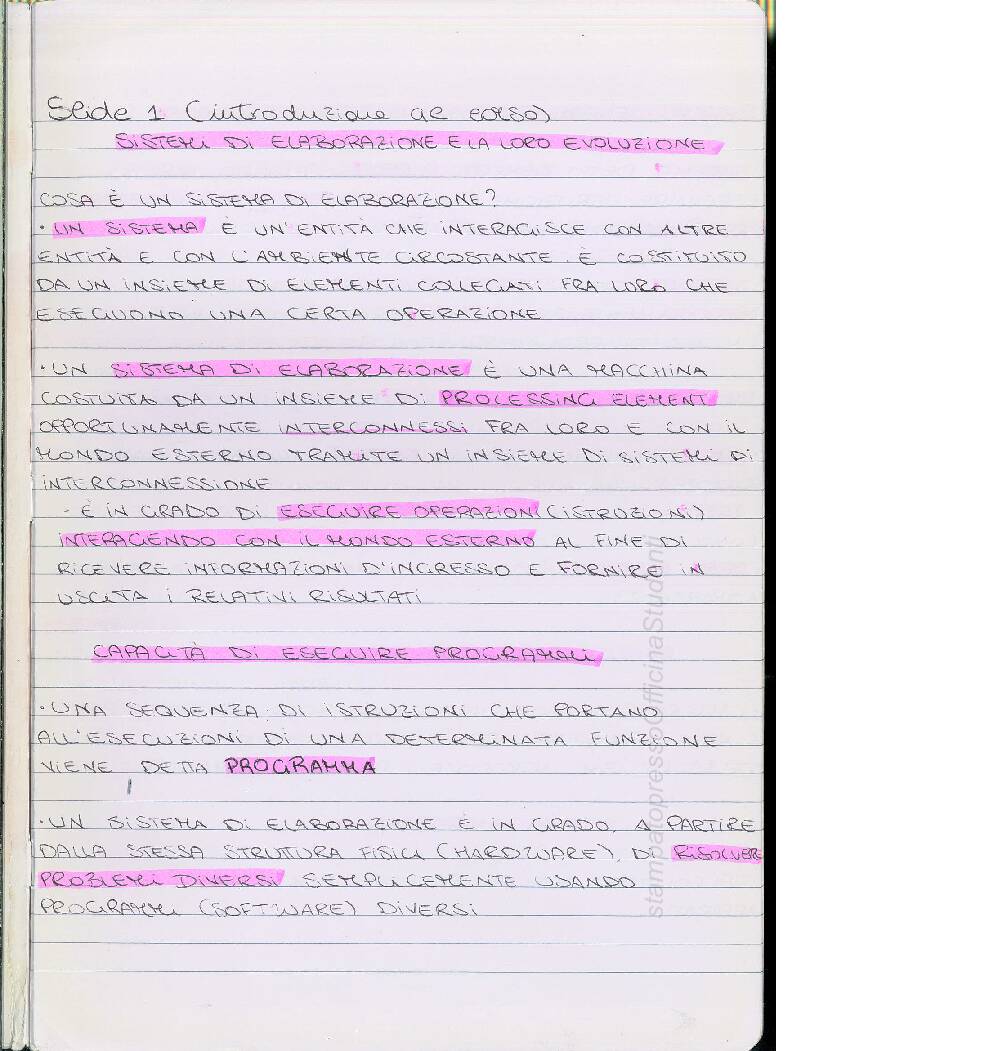 Slide 1 (introduzione al corso)
SISTEMI DI ELABORAZIONE E LA LORO EVOLUZIONE
COSA È UN SISTEMA DI ELABORAZIONE?
• UN SISTEMA È UN'ENTITÀ CHE INTERAGISCE CON ALTRE
ENTITÀ E CON L'AMBIENTE CIRCOSTANTE. È COSTITUITO
DA UN INSIEME DI ELEMENTI COLLEGATI FRA LORO CHE
ESEGUONO UNA CERTA OPERAZIONE
• UN SISTEMA DI ELABORAZIONE È UNA MACCHINA
COSTUITA DA UN INSIEME DI PROCESSING ELEMENT
OPPORTUNAMENTE INTERCONNESSI FRA LORO E CON IL
MONDO ESTERNO TRAMITE UN INSIEME DI SISTEMI DI
INTERCONNESSIONE
- È IN GRADO DI ESEGUIRE OPERAZIONI (ISTRUZIONI)
INTERAGENDO CON IL MONDO ESTERNO AL FINE DI
RICEVERE INFORMAZIONI D'INGRESSO E FORNIRE IN
USCITA I RELATIVI RISULTATI
CAPACITÀ DI ESEGUIRE PROGRAMMI
• UNA SEQUENZA DI ISTRUZIONI CHE PORTANO
ALL'ESECUZIONI DI UNA DETERMINATA FUNZIONE
VIENE DETTA PROGRAMMA
• UN SISTEMA DI ELABORAZIONE È IN GRADO, A PARTIRE
DALLA STESSA STRUTTURA FISICA (HARDWARE), DI RISOLVERE
PROBLEMI DIVERSI SEMPLICEMENTE USANDO
PROGRAMMI (SOFTWARE) DIVERSI
stampatopressoOfficinaStudenti